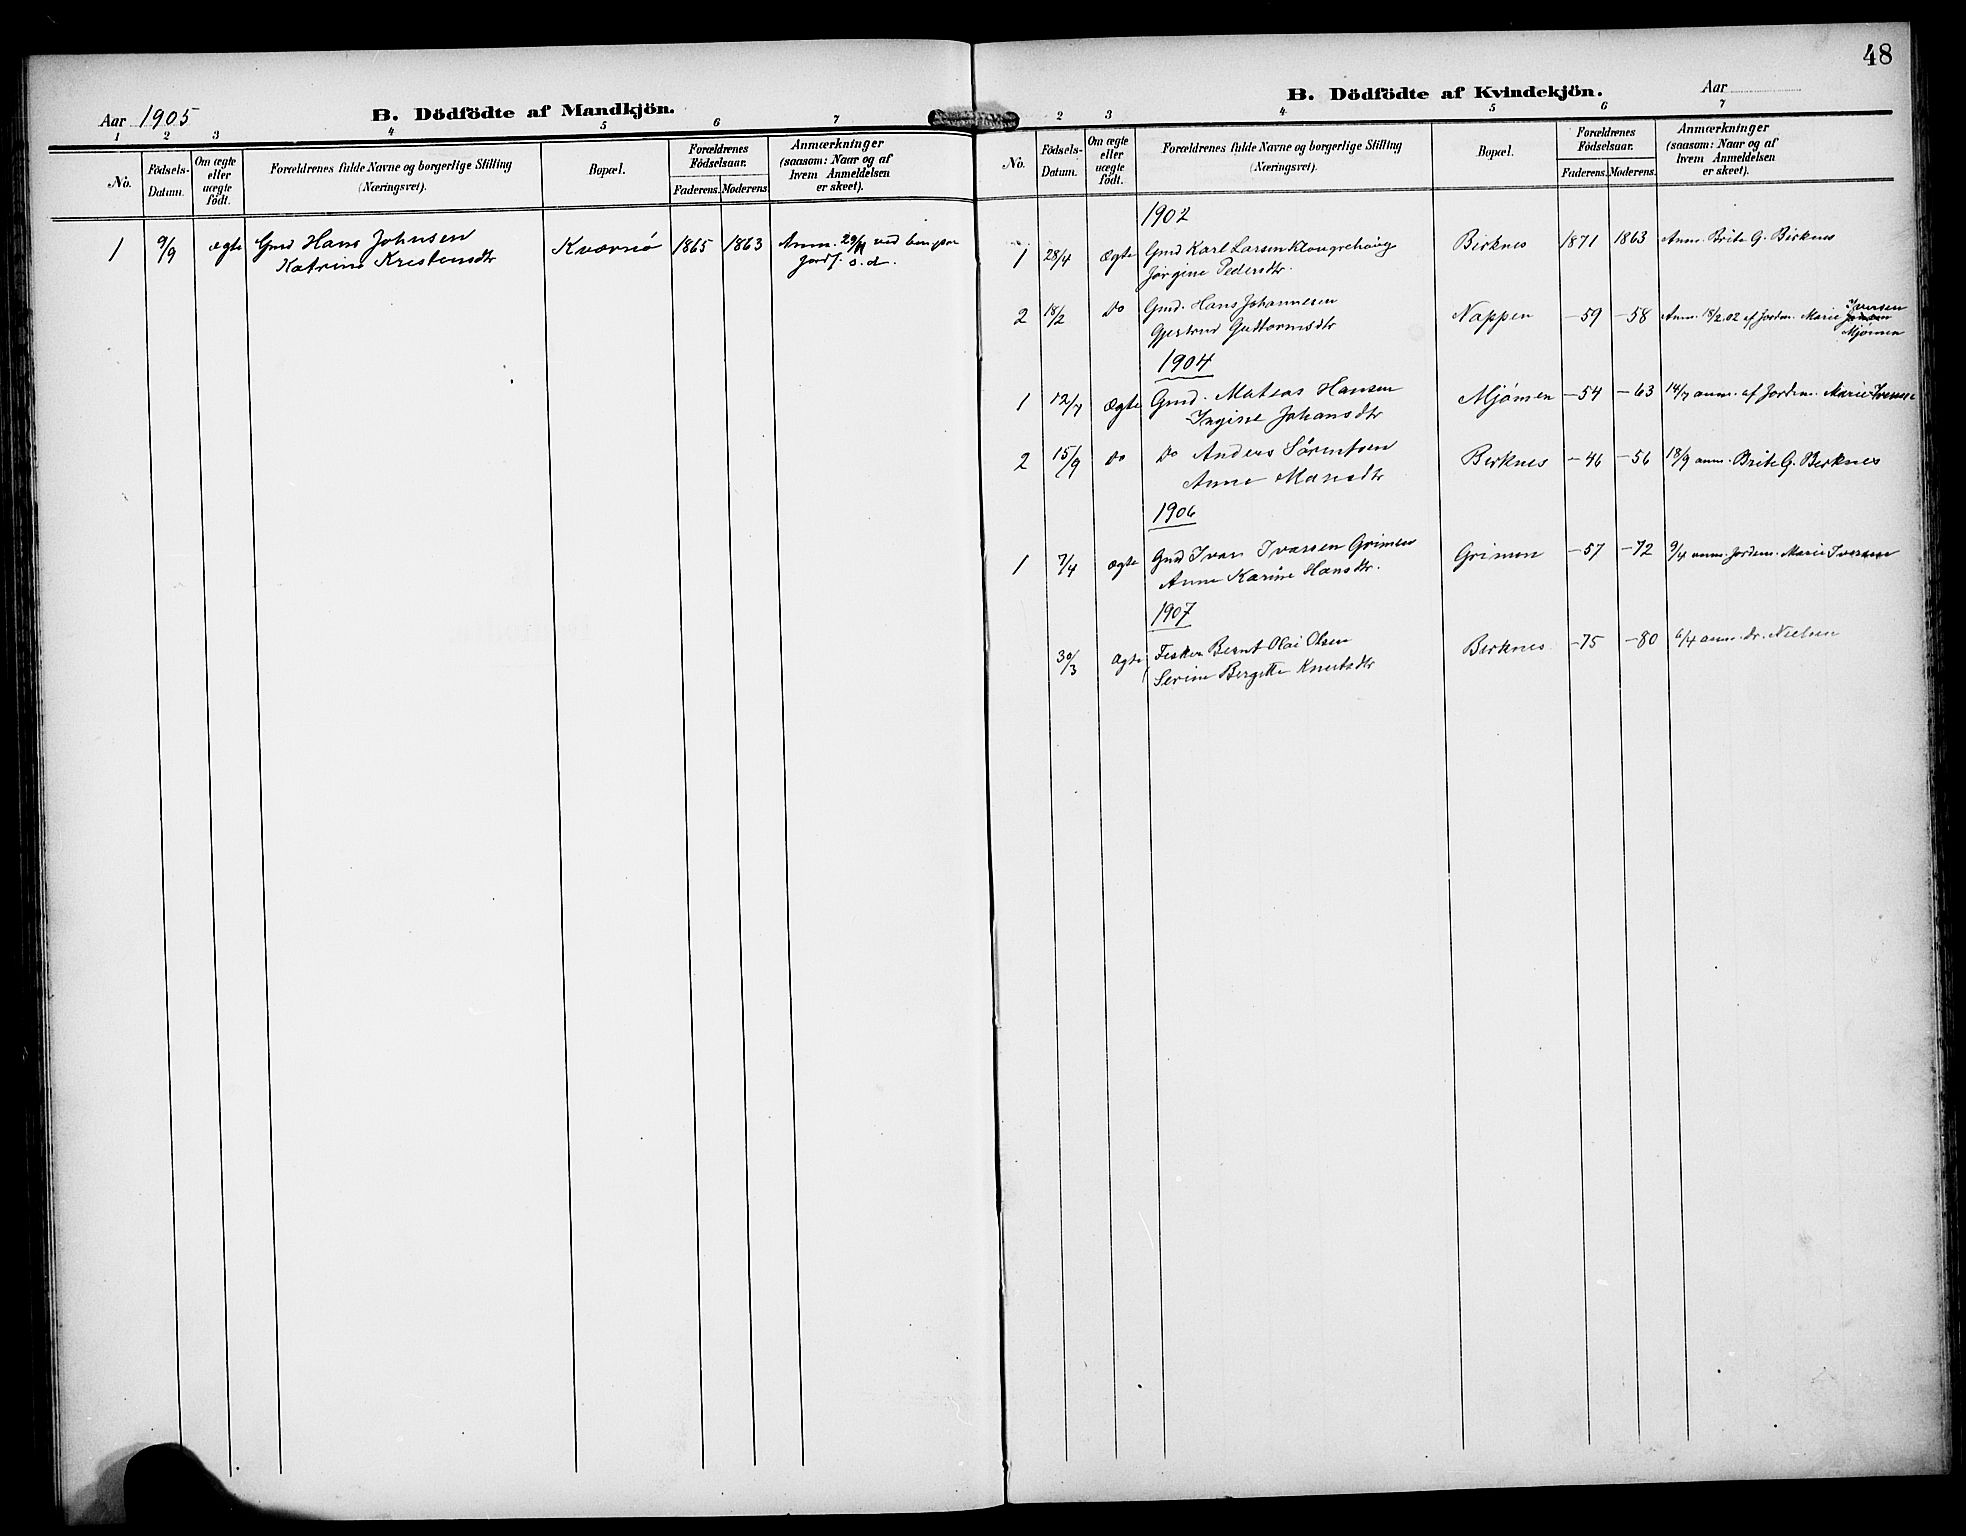 48
Aar 1905
B. Dödfödte af Mandkjön.
1 2 3 4 5 6 7
No.
Födsels-Datum.
Om ægte eller uægte födt.
Forældrenes fulde Navne og borgerlige Stilling (Næringsvei).
Bopæl.
Forældrenes Födselsaar.
Faderens. Moderens.
Anmærkninger (saasom: Naar og af hvem Anmeldelsen er skeet).
1 9/9 ægte Gmd Hans Johnsen Kværnø 1865 1863 Anm. 29/11 ved
Katrine Kristensdtr
B. Dödfödte af Kvindekjön.
Aar
2 3 4 5 6 7
No.
Födsels-Datum.
Om ægte eller uægte födt.
Forældrenes fulde Navne og borgerlige Stilling (Næringsvei).
Bopæl.
Forældrenes Födselsaar.
Faderens. Moderens.
Anmærkninger (saasom: Naar og af hvem Anmeldelsen er skeet).
1902
1 28/4 Ægte Gmd Karl Larsen Birknes 1871 1863 Anm. Brite G. Birknes
Jørgine Pedersdtr.
2 18/2 Do Gmd. Hans Johannesen Nappen -59 -58 Anm. 18/2 02 af Jordm. Marie Iversen
Gjertrud Guttormsdtr Mjømen
1904
1 12/7 Ægte Gmd. Mateas Hansen Mjömen -54 -63 14/7 anm. af Jordm. Marie Iversen
Ingine Johansdtr
2 15/9 Do Do Anders Sörentsen Birknes -46 -56 18/9 anm. Brite G. Birknes
Anne Monsdtr
1906
1 7/4 ægte Gmd Ivar Ivarsen Grimen Grimen -57 -72 9/4 anm. Jordm. Marie Iversen
Anne Karine Hansdtr.
1907
30/3 ægte Fisker Bernt Olai Olsen Birknes -75 -80 6/4 anm. dr. Nielsen
Serine Bergitte Knutsdtr